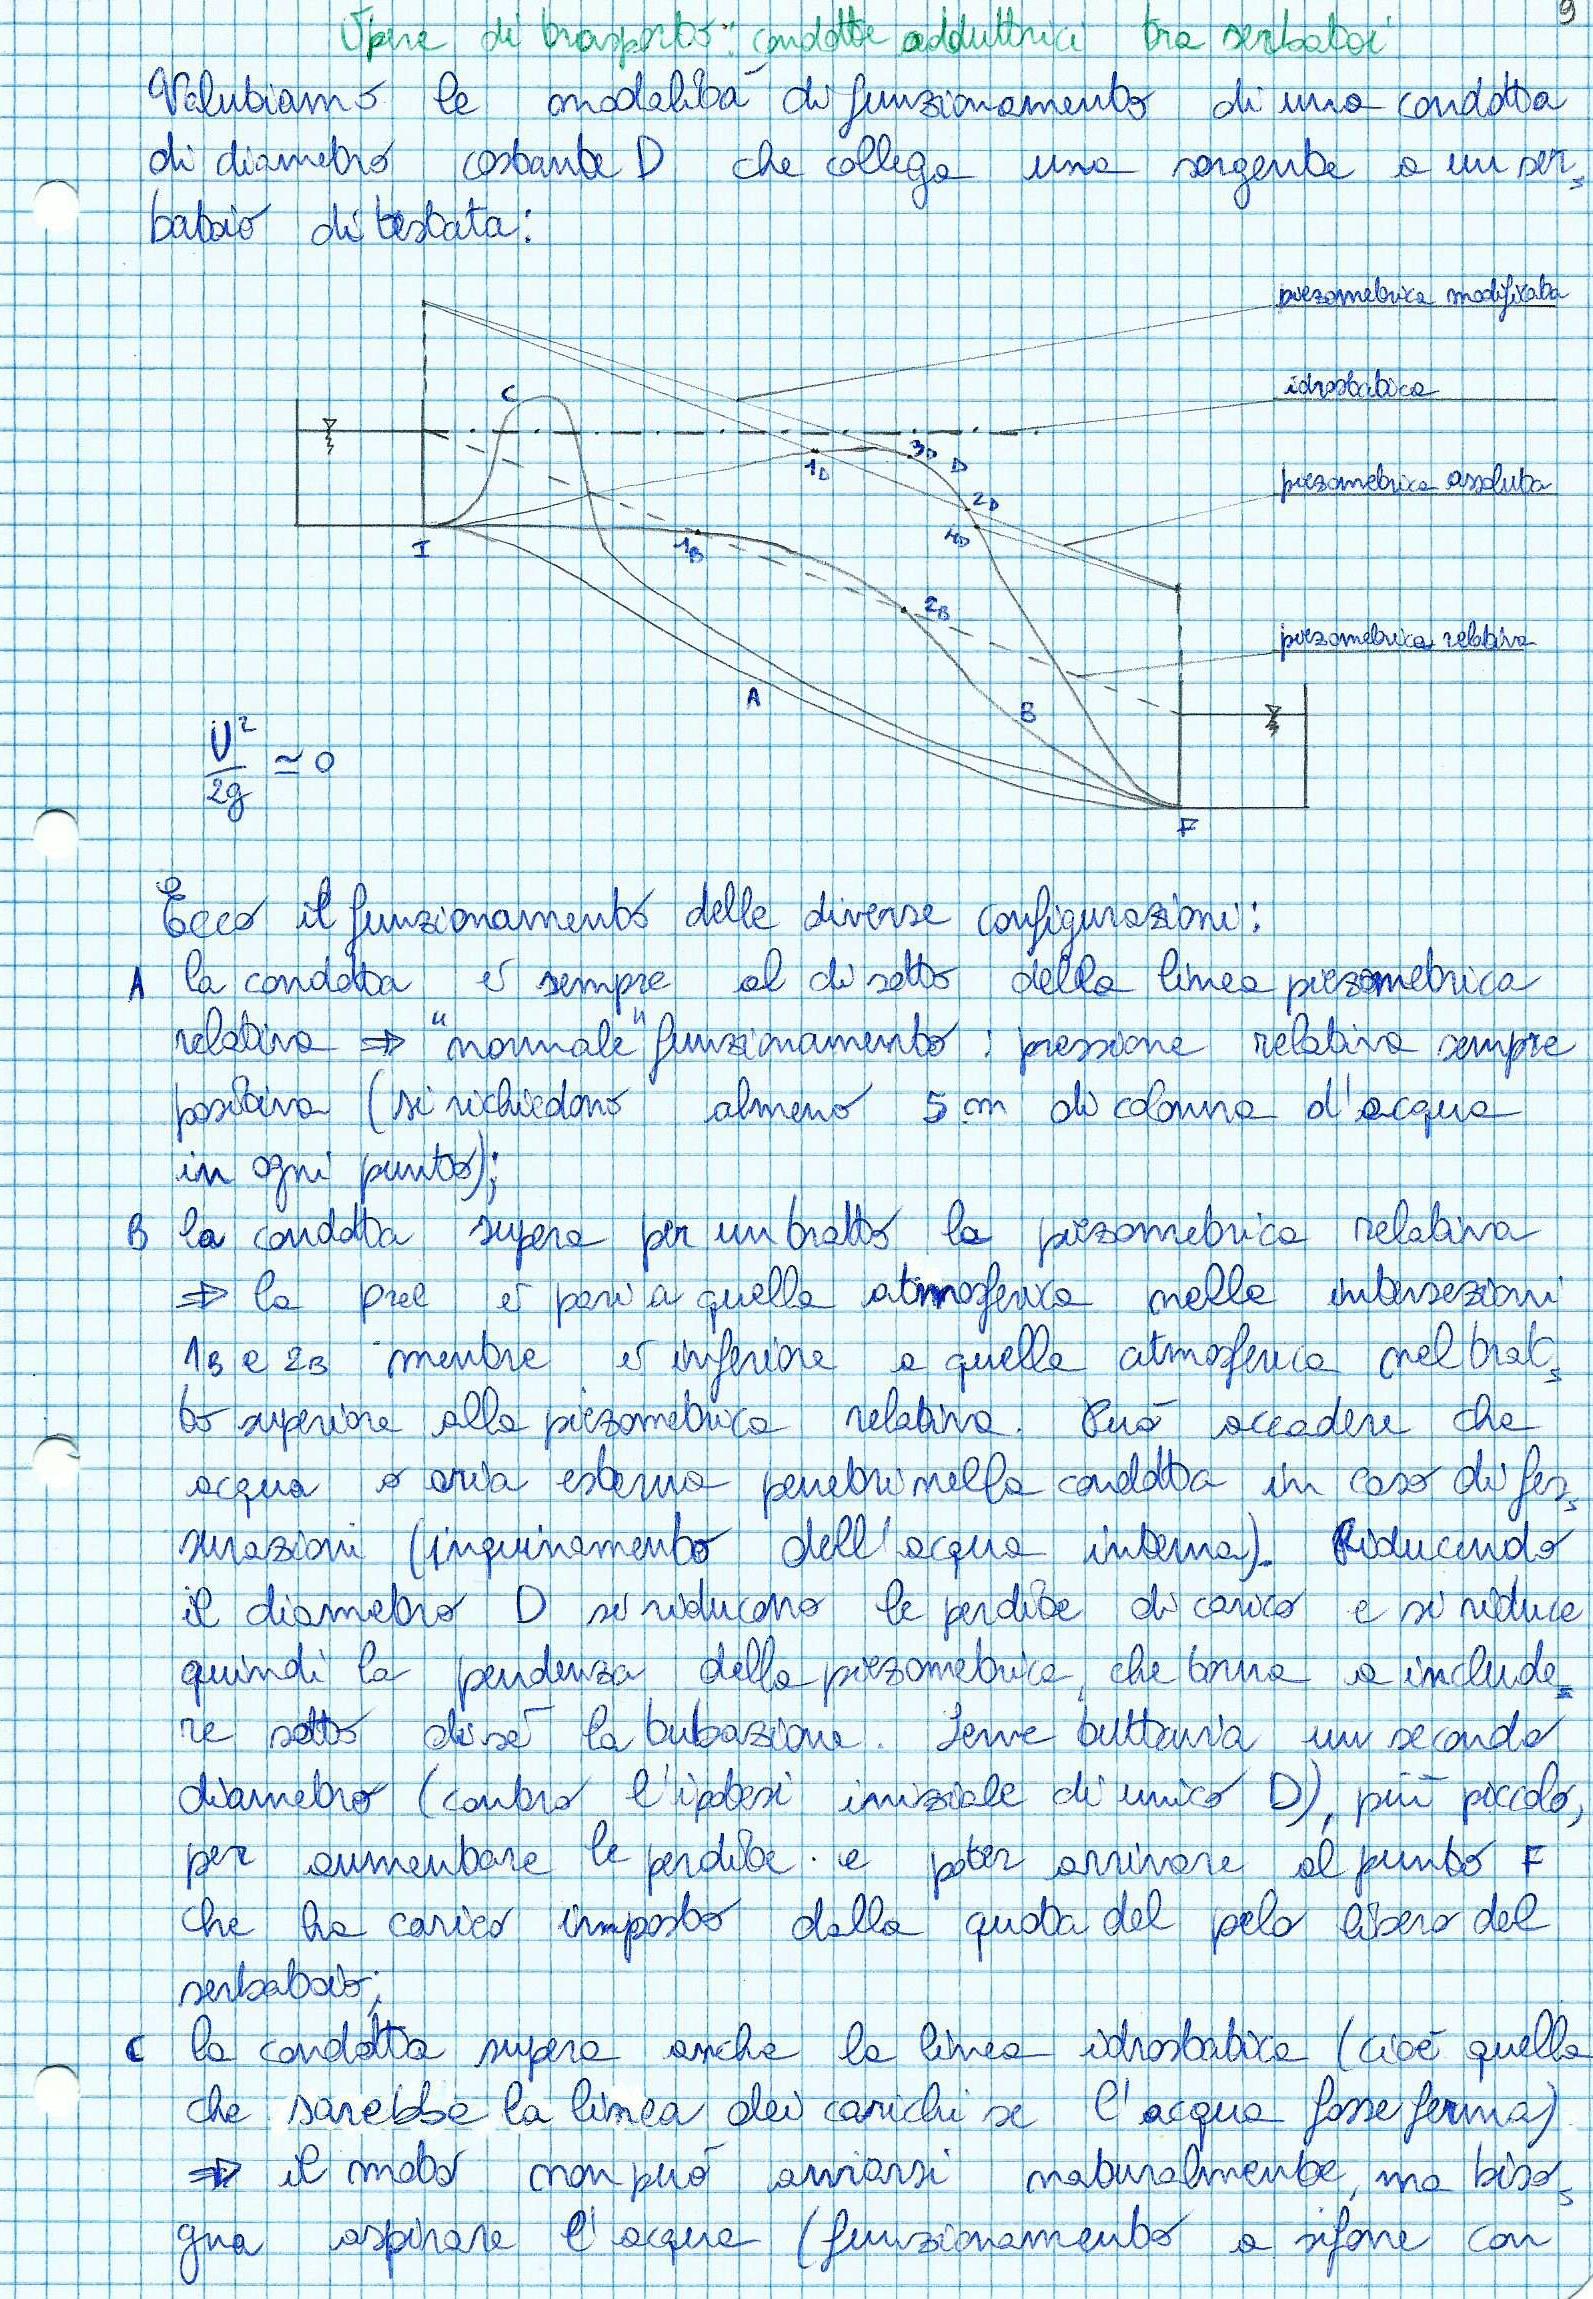 9
Opere di trasporto: condotte adduttrici tra serbatoi
Valutiamo le modalità di funzionamento di una condotta
di diametro costante D che collega una sorgente a un ser,
batoio di testata:
piezometrica modificata
idrostatica
C
1D
3D
D
piezometrica assoluta
2D
4D
I
1B
2B
piezometrica relativa
A
B
U²/2g ≃ 0
F
Ecco il funzionamento delle diverse configurazioni:
A la condotta è sempre al di sotto della linea piezometrica
relativa ⇒ "normale" funzionamento: pressione relativa sempre
positiva (si richiedono almeno 5 m di colonna d'acqua
in ogni punto);
B la condotta supera per un tratto la piezometrica relativa
⇒ la prel è pari a quella atmosferica nelle intersezioni
1B e 2B mentre è inferiore a quella atmosferica nel trat,
to superiore alla piezometrica relativa. Può accadere che
acqua o aria esterna penetri nella condotta in caso di fes,
surazioni (inquinamento dell'acqua interna). Riducendo
il diametro D si riducono le perdite di carico e si riduce
quindi la pendenza della piezometrica, che torna a include=
re sotto di sé la tubazione. Serve tuttavia un secondo
diametro (contro l'ipotesi iniziale di unico D), più piccolo,
per aumentare le perdite e poter arrivare al punto F
che ha carico imposto dalla quota del pelo libero del
serbatoio;
C la condotta supera anche la linea idrostatica (cioè quella
che sarebbe la linea dei carichi se l'acqua fosse ferma)
⇒ il moto non può avviarsi naturalmente, ma biso,
gna aspirare l'acqua (funzionamento a sifone con